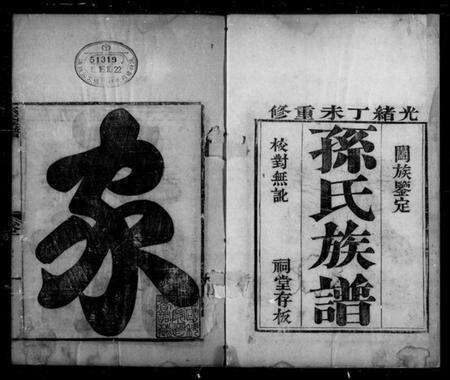 光緒丁未重修
閤族鑒定
孫氏族譜
校對無訛
祠堂存板
家
51319